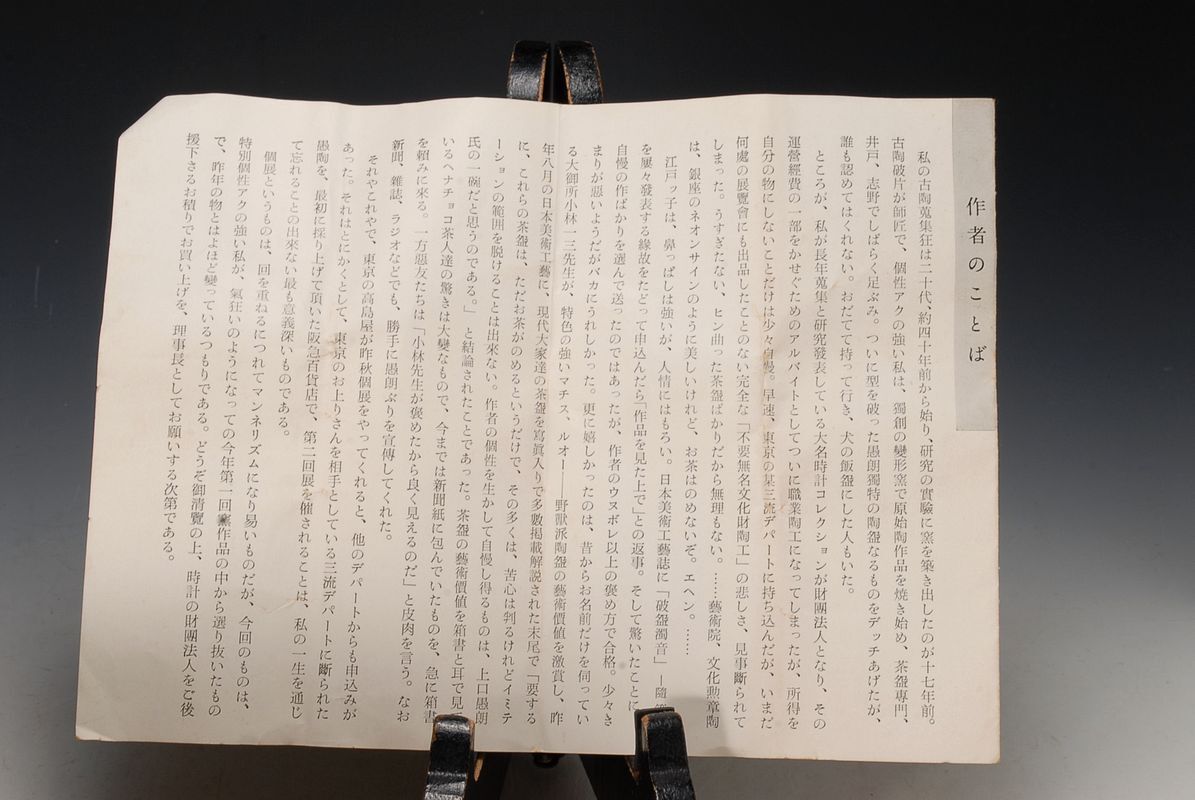 作者のことば
私の古陶蒐集狂は二十代、約四十年前から始り、研究の實驗に窯を築き出したのが十七年前。
古陶破片が師匠で、個性アクの強い私は、獨創の變形窯で原始陶作品を焼き始め、茶盌専門、
井戸、志野でしばらく足ぶみ。ついに型を破った愚朗獨特の陶盌なるものをデッチあげたが、
誰も認めてはくれない。おだてて持って行き、犬の飯盌にした人もいた。
ところが、私が長年蒐集と研究發表している大名時計コレクションが財團法人となり、その
運營經費の一部をかせぐためのアルバイトとしてついに職業陶工になってしまったが、所得を
自分の物にしないことだけは少々自慢。早速、東京の某三流デパートに持ち込んだが、いまだ
何處の展覽會にも出品したことのない完全な「不要無名文化財陶工」の悲しさ、見事斷られて
しまった。うすぎたない、ヒン曲った茶盌ばかりだから無理もない。……藝術院、文化勲章陶
は、銀座のネオンサインのように美しいけれど、お茶はのめないぞ。エヘン。……
江戸ッ子は、鼻っぱしは強いが、人情にはもろい。日本美術工藝誌に「破盌濁音」―隨
を屢々發表する緣故をたどって申込んだら「作品を見た上で」との返事。そして驚いたことに
自慢の作ばかりを選んで送ったのではあったが、作者のウヌボレ以上の褒め方で合格。少々き
まりが惡いようだがバカにうれしかった。更に嬉しかったのは、昔からお名前だけを伺ってい
る大御所小林一三先生が、特色の強いマチス、ルオー――野獸派陶盌の藝術價値を激賞し、昨
年八月の日本美術工藝に、現代大家達の茶盌を寫眞入りで多數掲載解説された末尾で「要する
に、これらの茶盌は、ただお茶がのめるというだけで、その多くは、苦心は判るけれどイミテ
ーションの範囲を脱けることは出來ない。作者の個性を生かして自慢し得るものは、上口愚朗
氏の一碗だと思うのである。」と結論されたことであった。茶盌の藝術價値を箱書と耳で見て
いるヘナチョコ茶人達の驚きは大變なもので、今までは新聞紙に包んでいたものを、急に箱書
を賴みに來る。一方惡友たちは「小林先生が褒めたから良く見えるのだ」と皮肉を言う。なお
新聞、雜誌、ラジオなどでも、勝手に愚朗ぶりを宣傳してくれた。
それやこれやで、東京の高島屋が昨秋個展をやってくれると、他のデパートからも申込みが
あった。それはとにかくとして、東京のお上りさんを相手としている三流デパートに斷られた
愚陶を、最初に採り上げて頂いた阪急百貨店で、第二回展を催されることは、私の一生を通じ
て忘れることの出來ない最も意義深いものである。
個展というものは、回を重ねるにつれてマンネリズムになり易いものだが、今回のものは、
特別個性アクの強い私が、氣狂いのようになっての今年第一回窯作品の中から選り抜いたもの
で、昨年の物とはよほど變っているつもりである。どうぞ御清覽の上、時計の財團法人をご後
援下さるお積りでお買い上げを、理事長としてお願いする次第である。